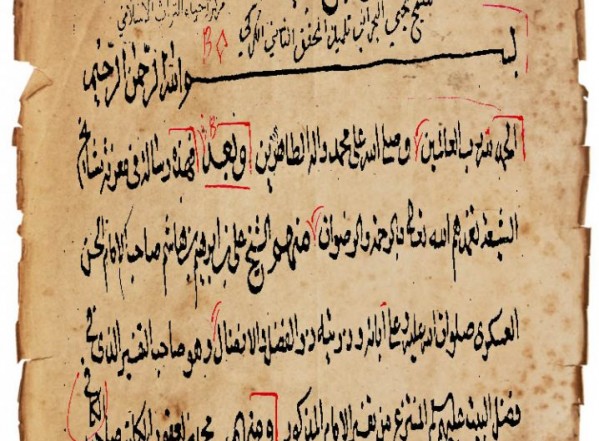 مركز احياء التراث الاسلامي
للشيخ يحيى البحراني تلميذ المحقق الثاني الكركي
بسم الله الرحمن الرحيم
الحمد لله رب العالمين وصلى الله على محمد واله الطاهرين وبعد فهذه رسالة في معرفة مشايخ
الشيعة تغمدهم الله تعالى بالرحمة والرضوان منهم الشيخ علي بن ابراهيم بن هاشم صاحب الامام الحسن
العسكري صلوات الله عليه وعلى آبائه وذريته ذو الفضل والافضال وهو صاحب التفسير الذي في
فضل البيت عليهم السلام المنتزع من تفسير الامام المذكور ومنهم محمد بن يعقوب الكليني صاحب
الكافي